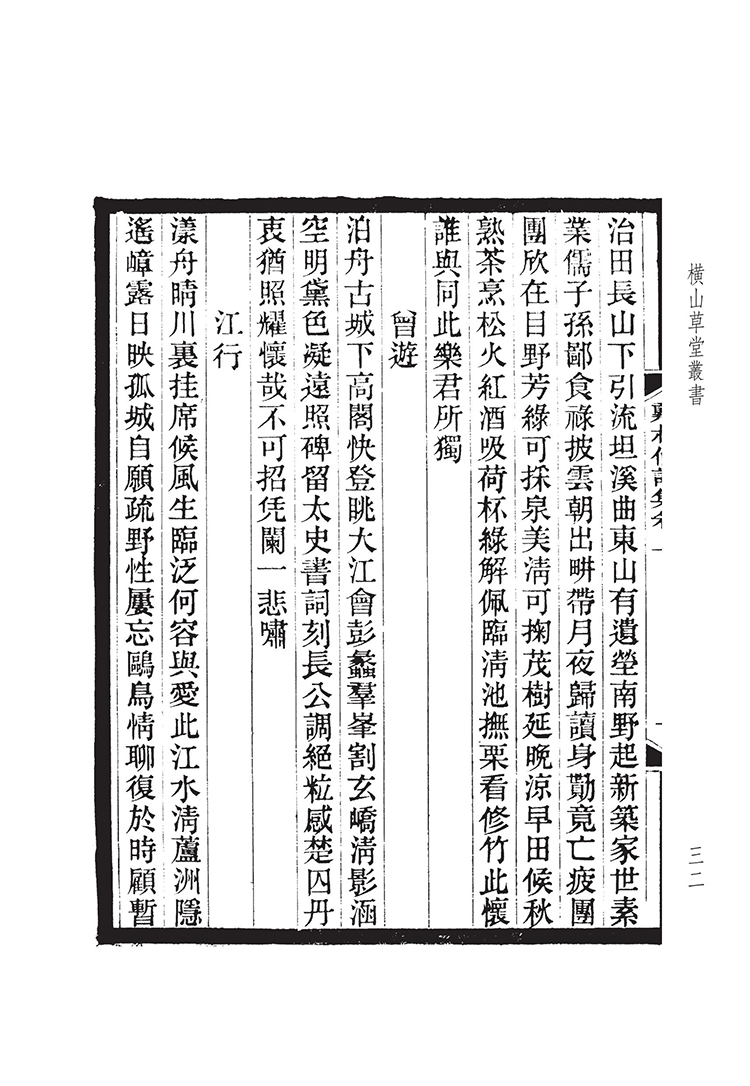 橫山草堂叢書
三二
治田長山下引流坦溪曲東山有遺塋南野起新築家世素
業儒子孫鄙食祿披雲朝出畊帶月夜歸讀身勩竟亡疲團
團欣在目野芳綠可採泉美淸可掬茂樹延晚涼早田候秋
熟茶烹松火紅酒吸荷杯綠解佩臨淸池撫栗看修竹此懷
誰與同此樂君所獨
曾遊
泊舟古城下高閣快登眺大江會彭蠡羣峯割玄嶠淸影涵
空明黛色凝遠照碑留太史書詞刻長公調絕粒感楚囚丹
衷猶照耀懷哉不可招凭闌一悲嘯
江行
漾舟晴川裏挂席候風生臨泛何容與愛此江水淸蘆洲隱
遙嶂露日映孤城自願疏野性屢忘鷗鳥情聊復於時顧暫